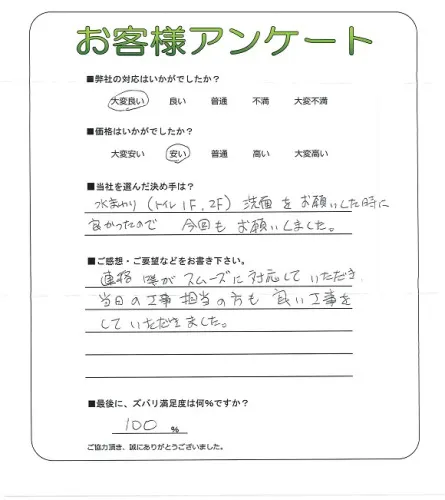 お客様アンケート
■弊社の対応はいかがでしたか？
大変良い 良い 普通 不満 大変不満
■価格はいかがでしたか？
大変安い 安い 普通 高い 大変高い
■当社を選んだ決め手は？
水まわり（トイレ1F、2F）洗面をお願いした時に
良かったので 今回もお願いしました。
■ご感想・ご要望などをお書き下さい。
連絡 がスムーズに対応していただき、
当日の工事担当の方も良い工事を
していただきました。
■最後に、ズバリ満足度は何％ですか？
100 ％
ご協力頂き、誠にありがとうございました。